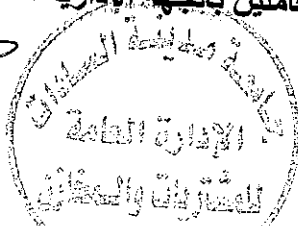 بالجهاز
جامعة مدينة السادات
الإدارة العامة
للمشتريات والمخازن